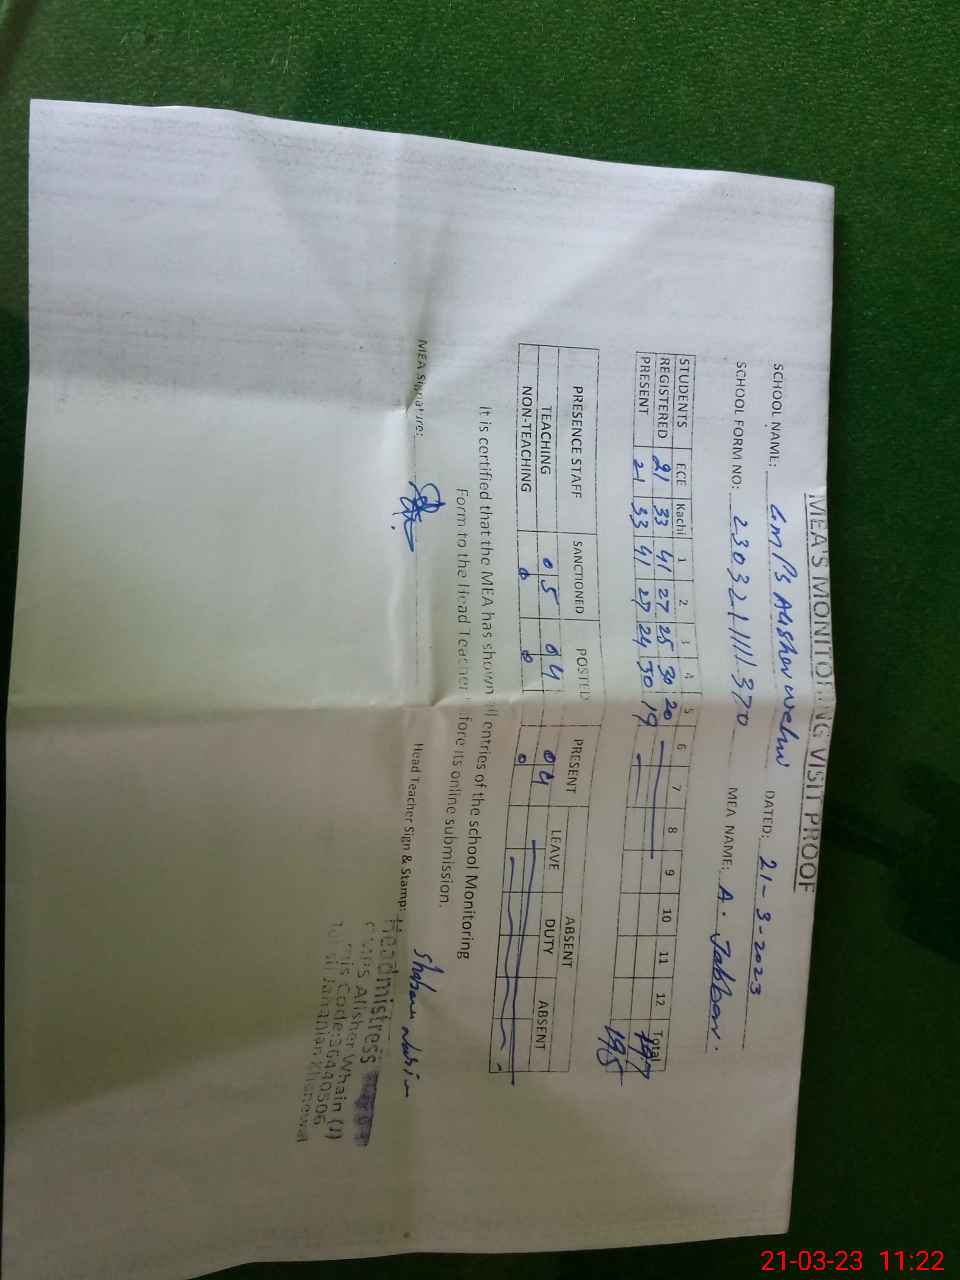 MEA'S MONITORING VISIT PROOF
SCHOOL NAME: GMPS Alisher Wahn DATED: 21-3-2023
SCHOOL FORM NO: 230321111370 MEA NAME: A. Jabbar.
STUDENTS ECE Kachi 1 2 3 4 5 6 7 8 9 10 11 12 Total
REGISTERED 21 33 41 27 25 30 20 197
PRESENT 21 33 41 27 24 30 19 195
PRESENCE STAFF SANCTIONED POSTED PRESENT ABSENT
LEAVE DUTY ABSENT
TEACHING 05 04 04
NON-TEACHING 0 0 0
It is certified that the MEA has shown all entries of the school Monitoring
Form to the Head Teacher before its online submission.
MEA Signature: Head Teacher Sign & Stamp:
Headmistress
GMPS Alisher Whain (J)
Code:36440506
Jahanian Khanewal
21-03-23 11:22